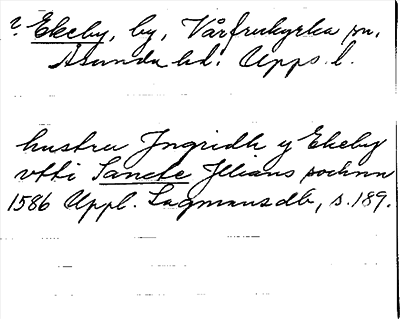 ? Ekeby, by, Vårfrukyrka sn.
Åsunda hd. Upps. l.
hustru Jngridh y Ekeby
vtti Sancte Jllians sochnn
1586 Uppl. Lagmansdb, s. 189.